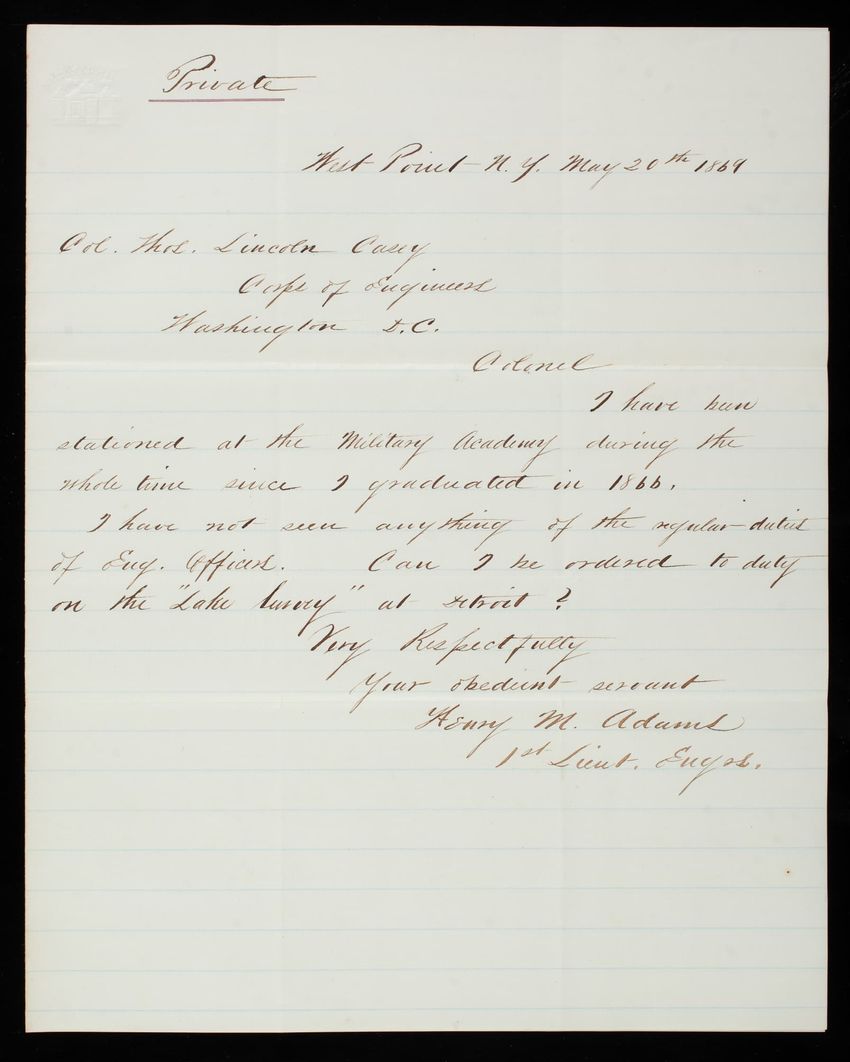 Private
West Point N.Y. May 20th 1869
Col. Thos. Lincoln Casey
Corps of Engineers
Washington D.C.
Colonel
I have been
stationed at the Military Academy during the
whole time since I graduated in 1866.
I have not seen anything of the regular duties
of Eng. Officers. Can I be ordered to duty
on the "Lake Survey" at Detroit?
Very Respectfully
Your obedient servant
Henry M. Adams
1st Lieut. Engrs.